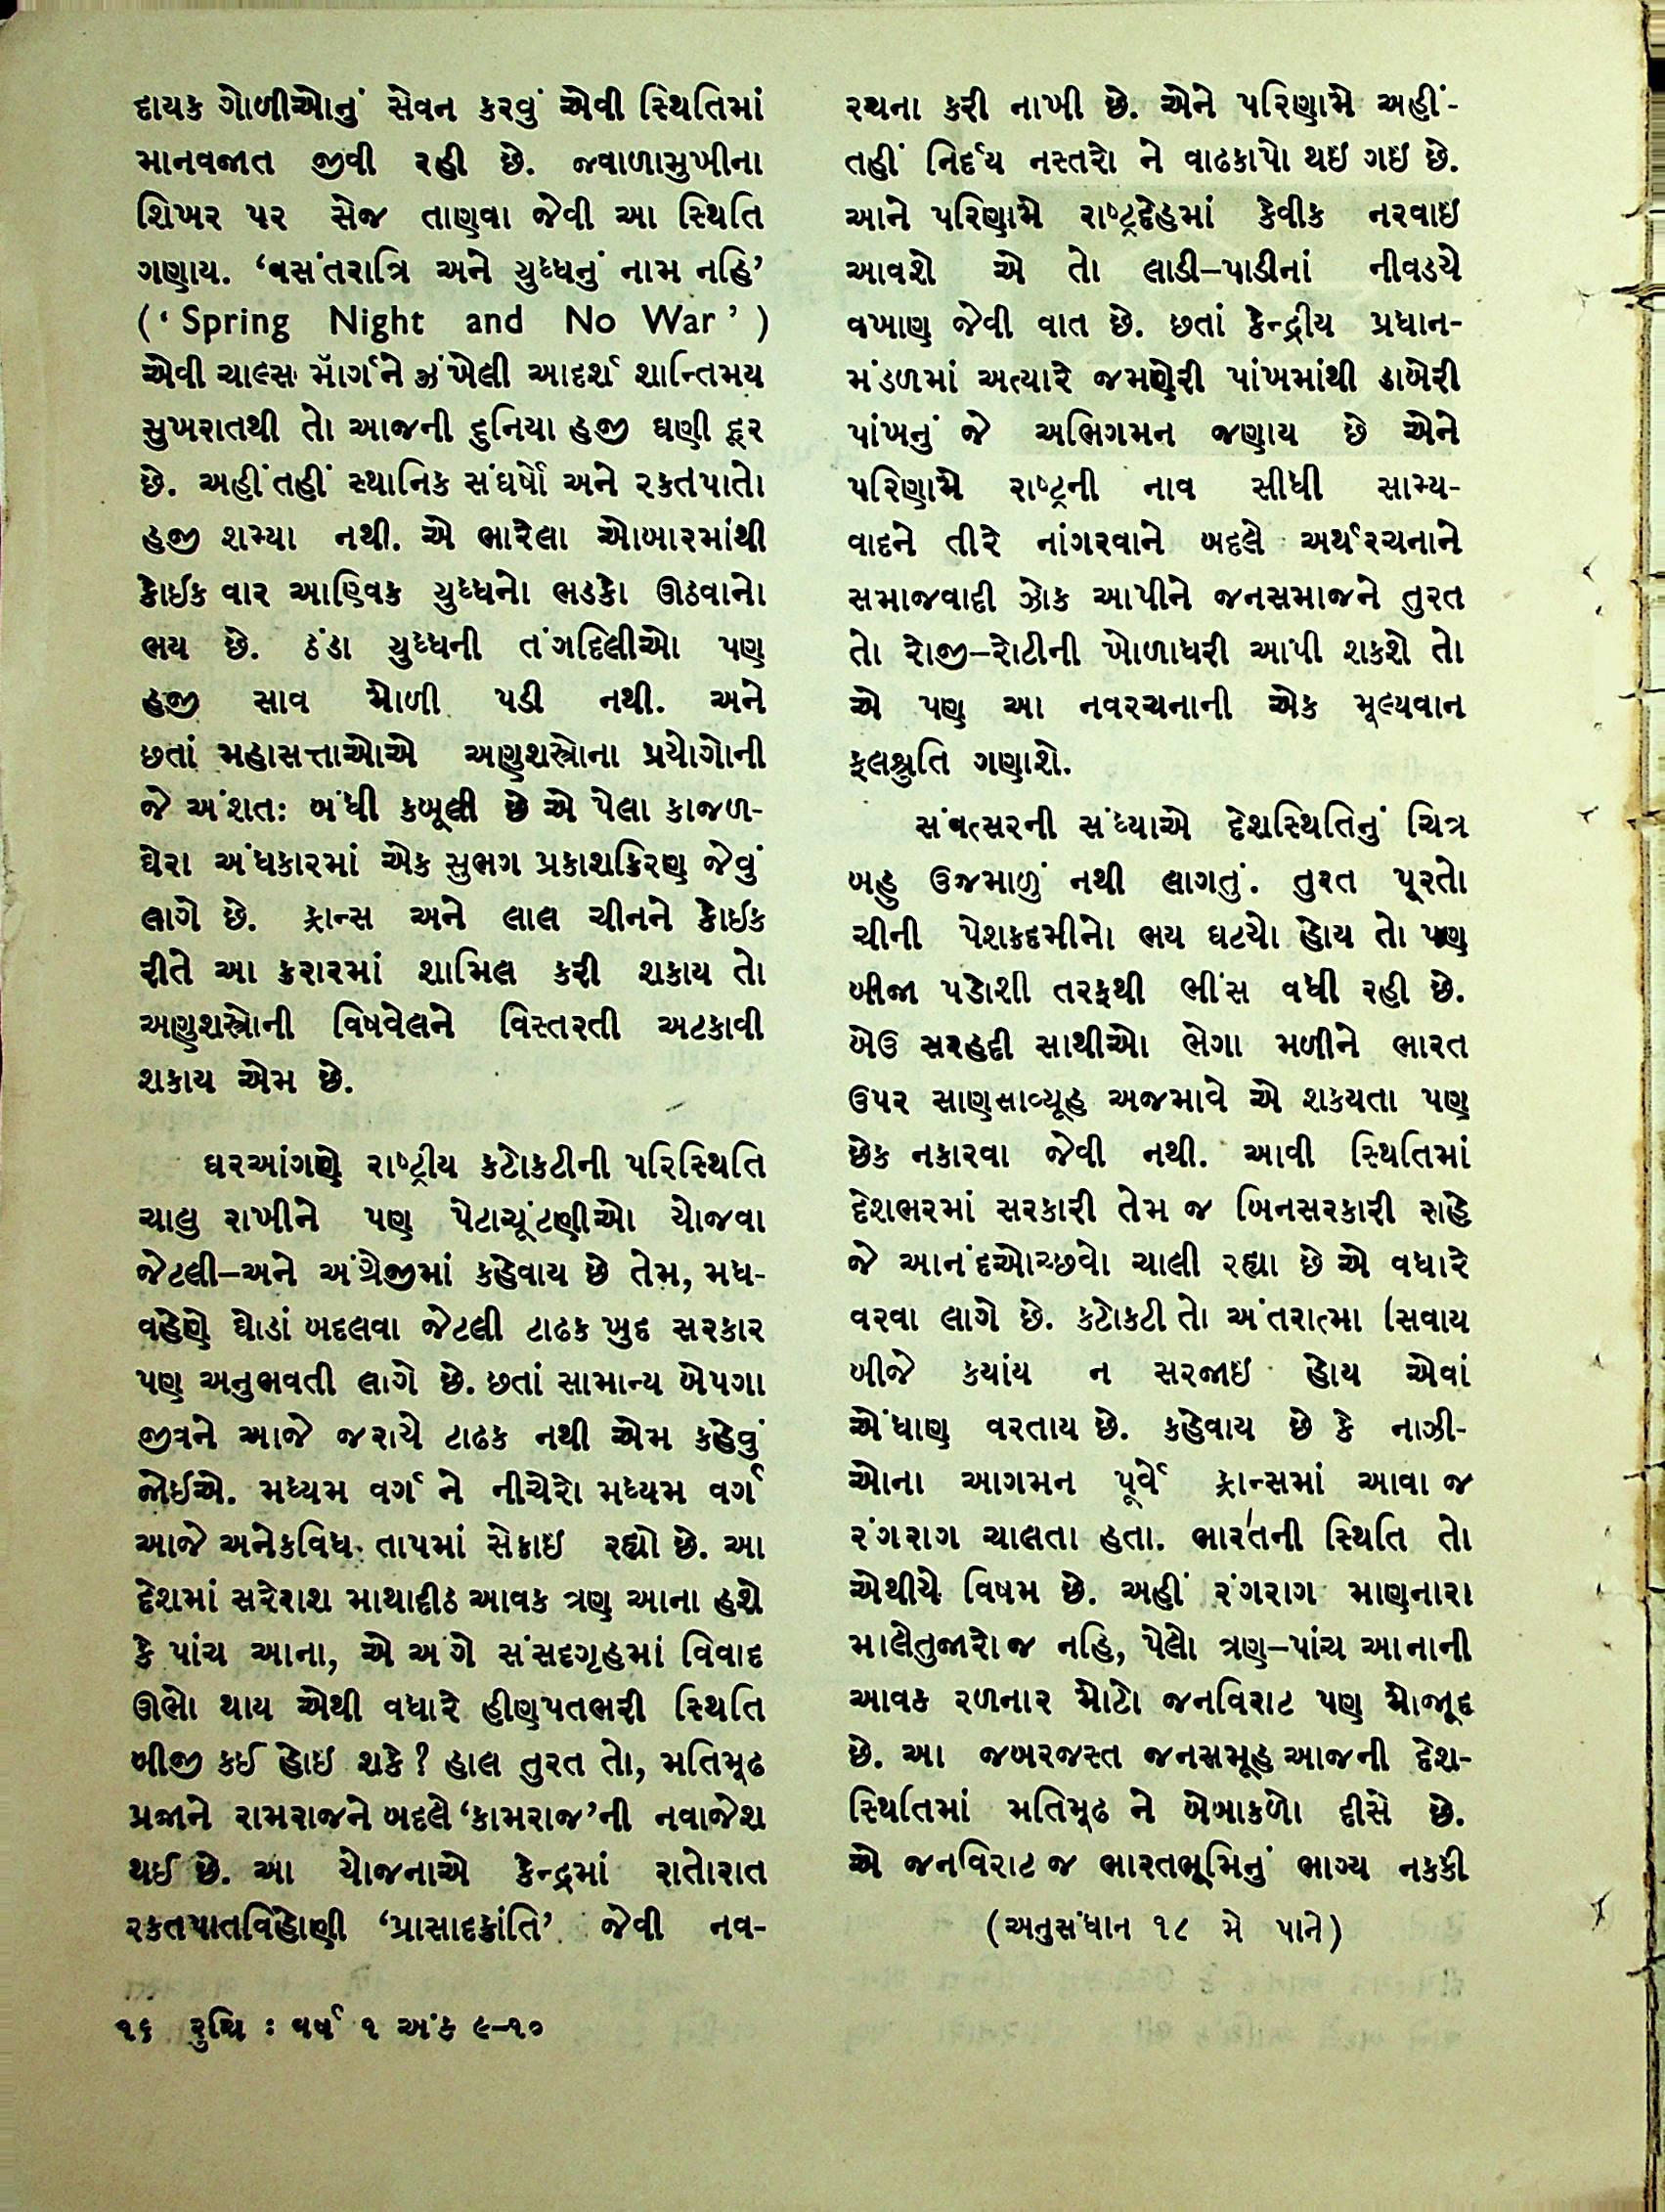 દાયક ગોળીઓનું સેવન કરવું એવી સ્થિતિમાં
માનવજાત જીવી રહી છે. જ્વાળામુખીના
શિખર પર સેજ તાણવા જેવી આ સ્થિતિ
ગણાય. ‘વસંતરાત્રિ અને યુધ્ધનું નામ નહિ’
(‘ Spring Night and No War ’ )
એવી ચાર્લ્સ મૉર્ગને ઝંખેલી આદર્શ શાન્તિમય
સુખરાતથી તો આજની દુનિયા હજી ઘણી દૂર
છે. અહીંતહીં સ્થાનિક સંઘર્ષો અને રક્તપાતો
હજી શમ્યા નથી. એ ભારેલા ઓબારમાંથી
કોઈક વાર આણ્વિક યુધ્ધનો ભડકો ઊઠવાનો
ભય છે. ઠંડા યુધ્ધની તંગદિલીઓ પણ
હજી સાવ મોળી પડી નથી. અને
છતાં મહાસત્તાઓએ અણુશસ્ત્રોના પ્રયોગોની
જે અંશતઃ બંધી કબૂલી છે એ પેલા કાજળ-
ઘેરા અંધકારમાં એક સુભગ પ્રકાશકિરણ જેવું
લાગે છે. ફ્રાન્સ અને લાલ ચીનને કોઈક
રીતે આ કરારમાં શામિલ કરી શકાય તો
અણુશસ્ત્રોની વિષવેલને વિસ્તરતી અટકાવી
શકાય એમ છે.
ઘરઆંગણે રાષ્ટ્રીય કટોકટીની પરિસ્થિતિ
ચાલુ રાખીને પણ પેટાચૂંટણીઓ યોજવા
જેટલી–અને અંગ્રેજીમાં કહેવાય છે તેમ, મધ-
વહેણે ઘોડાં બદલવા જેટલી ટાઢક ખુદ સરકાર
પણ અનુભવતી લાગે છે. છતાં સામાન્ય બેપગા
જીવને આજે જરાયે ટાઢક નથી એમ કહેવું
જોઈએ. મધ્યમ વર્ગ ને નીચેરો મધ્યમ વર્ગ
આજે અનેકવિધ તાપમાં સેકાઇ રહ્યો છે. આ
દેશમાં સરેરાશ માથાદીઠ આવક ત્રણ આના હશે
કે પાંચ આના, એ અંગે સંસદગૃહમાં વિવાદ
ઊભો થાય એથી વધારે હીણપતભરી સ્થિતિ
બીજી કઈ હોઇ શકે? હાલ તુરત તો, મતિમૂઢ
પ્રજાને રામરાજને બદલે ‘કામરાજ’ની નવાજેશ
થઈ છે. આ યોજનાએ કેન્દ્રમાં રાતોરાત
રક્તપાતવિહોણી ‘પ્રાસાદક્રાંતિ’ જેવી નવ-
રચના કરી નાખી છે. એને પરિણામે અહીં-
તહીં નિર્દય નસ્તરો ને વાઢકાપો થઇ ગઇ છે.
આને પરિણામે રાષ્ટ્રદેહમાં કેવીક નરવાઇ
આવશે એ તો લાડી–પાડીનાં નીવડયે
વખાણ જેવી વાત છે. છતાં કેન્દ્રીય પ્રધાન-
મંડળમાં અત્યારે જમણેરી પાંખમાંથી ડાબેરી
પાંખનું જે અભિગમન જણાય છે એને
પરિણામે રાષ્ટ્રની નાવ સીધી સામ્ય-
વાદને તીરે નાંગરવાને બદલે અર્થરચનાને
સમાજવાદી ઝોક આપીને જનસમાજને તુરત
તો રોજી–રોટીની ખોળાધરી આપી શકશે તો
એ પણ આ નવરચનાની એક મૂલ્યવાન
ફલશ્રુતિ ગણાશે.
સંવત્સરની સંધ્યાએ દેશસ્થિતિનું ચિત્ર
બહુ ઉજમાળું નથી લાગતું. તુરત પૂરતો
ચીની પેશકદમીનો ભય ઘટયો હોય તો પણ
બીજા પડોશી તરફથી ભીંસ વધી રહી છે.
બેઉ સરહદી સાથીઓ ભેગા મળીને ભારત
ઉપર સાણસાવ્યૂહ અજમાવે એ શકયતા પણ
છેક નકારવા જેવી નથી. આવી સ્થિતિમાં
દેશભરમાં સરકારી તેમ જ બિનસરકારી રાહે
જે આનંદઓચ્છવો ચાલી રહ્યા છે એ વધારે
વરવા લાગે છે. કટોકટી તો અંતરાત્મા સિવાય
બીજે કયાંય ન સરજાઇ હોય એવાં
એંધાણ વરતાય છે. કહેવાય છે કે નાઝી-
ઓના આગમન પૂર્વે ફ્રાન્સમાં આવા જ
રંગરાગ ચાલતા હતા. ભારતની સ્થિતિ તો
એથીયે વિષમ છે. અહીં રંગરાગ માણનારા
માલેતુજારો જ નહિ, પેલો ત્રણ–પાંચ આનાની
આવક રળનાર મોટો જનવિરાટ પણ મોજૂદ
છે. આ જબરજસ્ત જનસમૂહ આજની દેશ-
સ્થિતિમાં મતિમૂઢ ને બેબાકળો દીસે છે.
એ જનવિરાટ જ ભારતભૂમિનું ભાગ્ય નકકી
(અનુસંધાન ૧૮ મે પાને)
૧૬ રુચિ : વર્ષ ૧ અંક ૯–૧૦